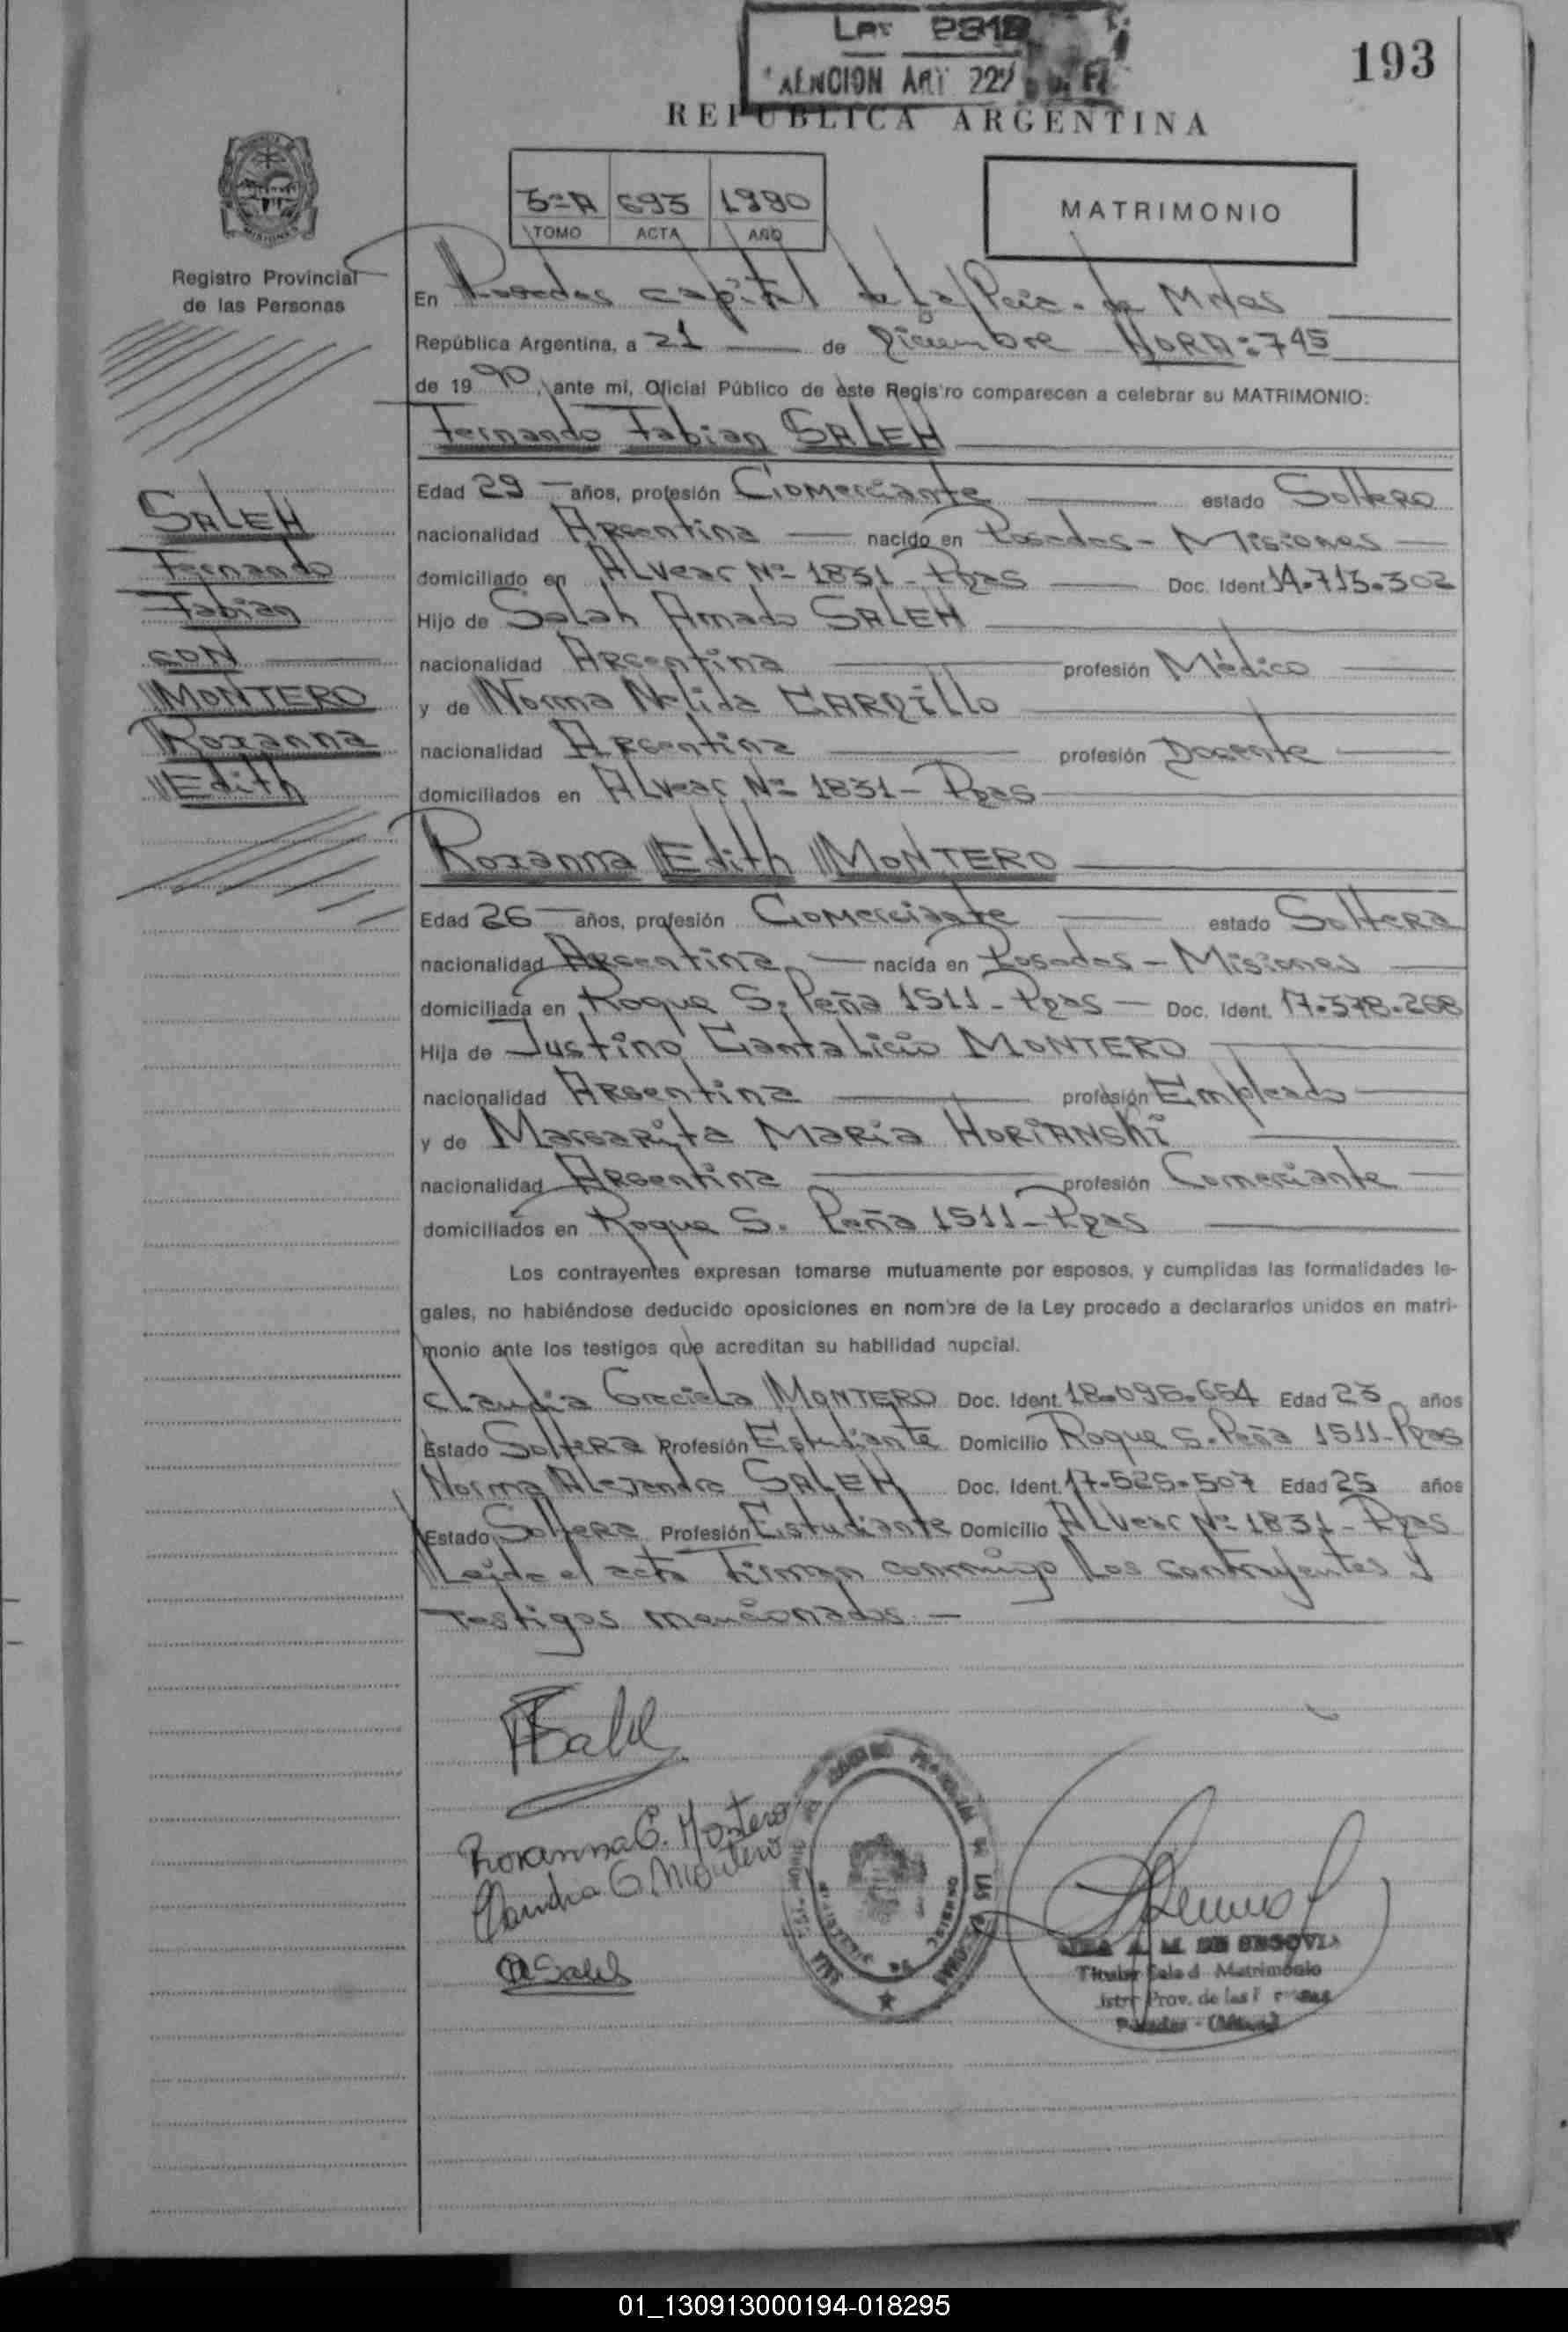 Ley 2312
ART 227
193
REPUBLICA ARGENTINA
5ºA 693 1990
TOMO ACTA AÑO
MATRIMONIO
Registro Provincial
de las Personas
En Posadas capital de La Pcia. de Mnes
República Argentina, a 21 de Diciembre HORA: 745
de 1990, ante mi, Oficial Público de este Registro comparecen a celebrar su MATRIMONIO:
Fernando Fabian SALEH
SALEH
Fernando
Fabian
CON
MONTERO
Roxanna
Edith
Edad 29 años, profesión Comerciante estado Soltero
nacionalidad Argentina nacido en Posadas - Misiones
domiciliado en Alvear Nº 1831 - Pdas Doc. Ident. 14.713.302
Hijo de Salah Amado SALEH
nacionalidad Argentina profesión Médico
y de Norma Nelida CARRILLO
nacionalidad Argentina profesión Docente
domiciliados en Alvear Nº 1831 - Pdas
Roxanna Edith MONTERO
Edad 26 años, profesión Comerciante estado Soltera
nacionalidad Argentina nacida en Posadas - Misiones
domiciliada en Roque S. Peña 1511 - Pdas Doc. Ident. 17.378.268
Hija de Justino Cantalicio MONTERO
nacionalidad Argentina profesión Empleado
y de Margarita Maria HORIANSKI
nacionalidad Argentina profesión Comerciante
domiciliados en Roque S. Peña 1511 - Pdas
Los contrayentes expresan tomarse mutuamente por esposos, y cumplidas las formalidades le-
gales, no habiéndose deducido oposiciones en nombre de la Ley procedo a declararlos unidos en matri-
monio ante los testigos que acreditan su habilidad nupcial.
Claudia Graciela MONTERO Doc. Ident. 18.096.654 Edad 23 años
Estado Soltera Profesión Estudiante Domicilio Roque S. Peña 1511 - Pdas
Norma Alejandra SALEH Doc. Ident. 17.525.507 Edad 25 años
Estado Soltera Profesión Estudiante Domicilio Alvear Nº 1831 - Pdas
Leida el acta Firman conmigo Los contrayentes y
Testigos mencionados. -
FSaleh
Roxanna E. Montero
Claudia G. Montero
Saleh
A. M. DE SEGOVIA
Titular Sala d Matrimonio
Prov. de las
Posadas - (Misiones)
01_130913000194-018295